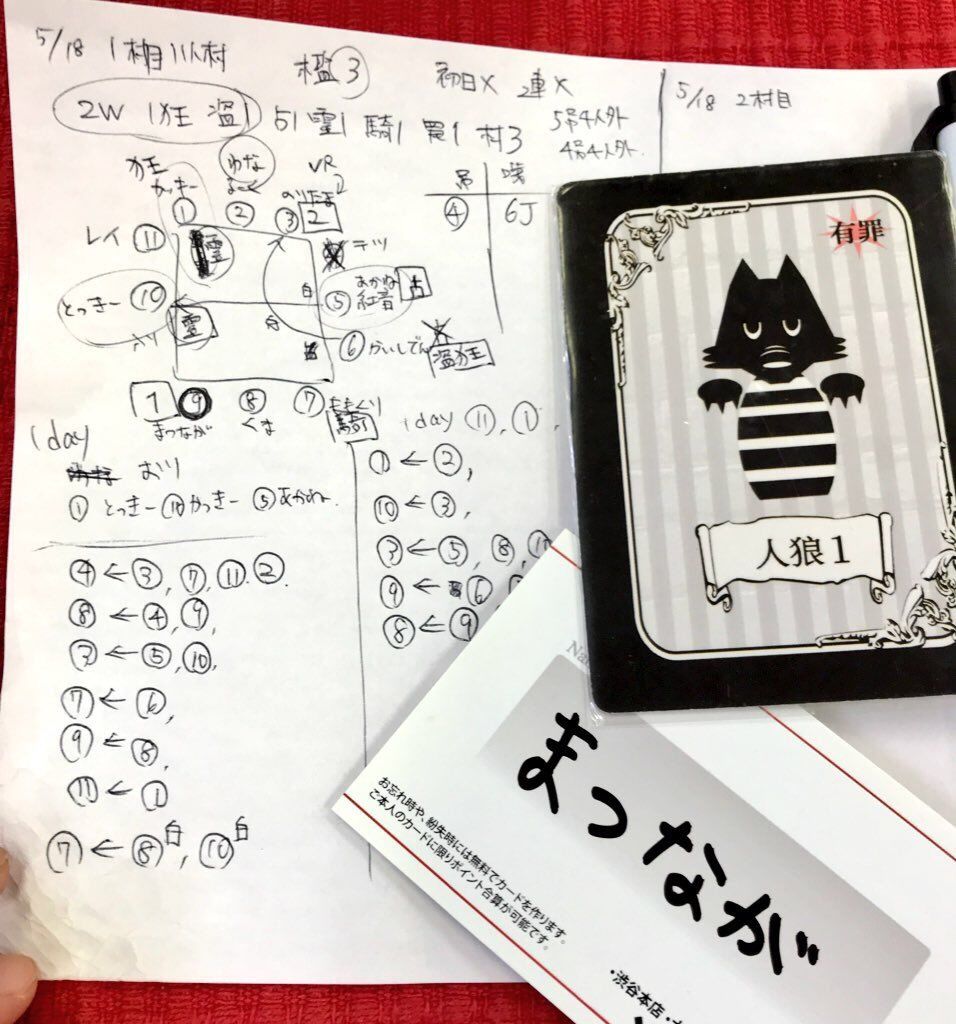 5/18 1村目 11人村
檻③
初日× 2連×
5/18 2村目
2W 1狂 盗1 占1 霊1 騎1 罠1 村3
5吊4人外
4吊4人外
狂 わな
かっきー
① ② ③ 2
のりたま
吊 噛
④ 6J
レイ ⑪ 霊
とっきー ⑩ 霊
白 ⑤ あかね 占
紅音
白 ⑥ かいしでん
盗 狂
1 ⑨ ⑧ ⑦ ももぐり
まつなが くま 騎
1day
① とっきー ⑩ かっきー ⑤ あかね
④ ← ③, ⑦, ⑪, ②
⑧ ← ④, ⑨,
③ ← ⑤, ⑩,
⑦ ← ⑥,
⑨ ← ⑧,
⑪ ← ①
⑦ ← ⑧白, ⑩白
1day ⑪, ①,
① ← ②,
⑩ ← ③,
③ ← ⑤, ⑧,
⑨ ← ⑥
⑧ ← ⑨
有罪
人狼1
まつなが
お忘れ時や、紛失時には無料でカードを作ります。
ご本人のカードに限りポイント合算が可能です。
・渋谷本店・